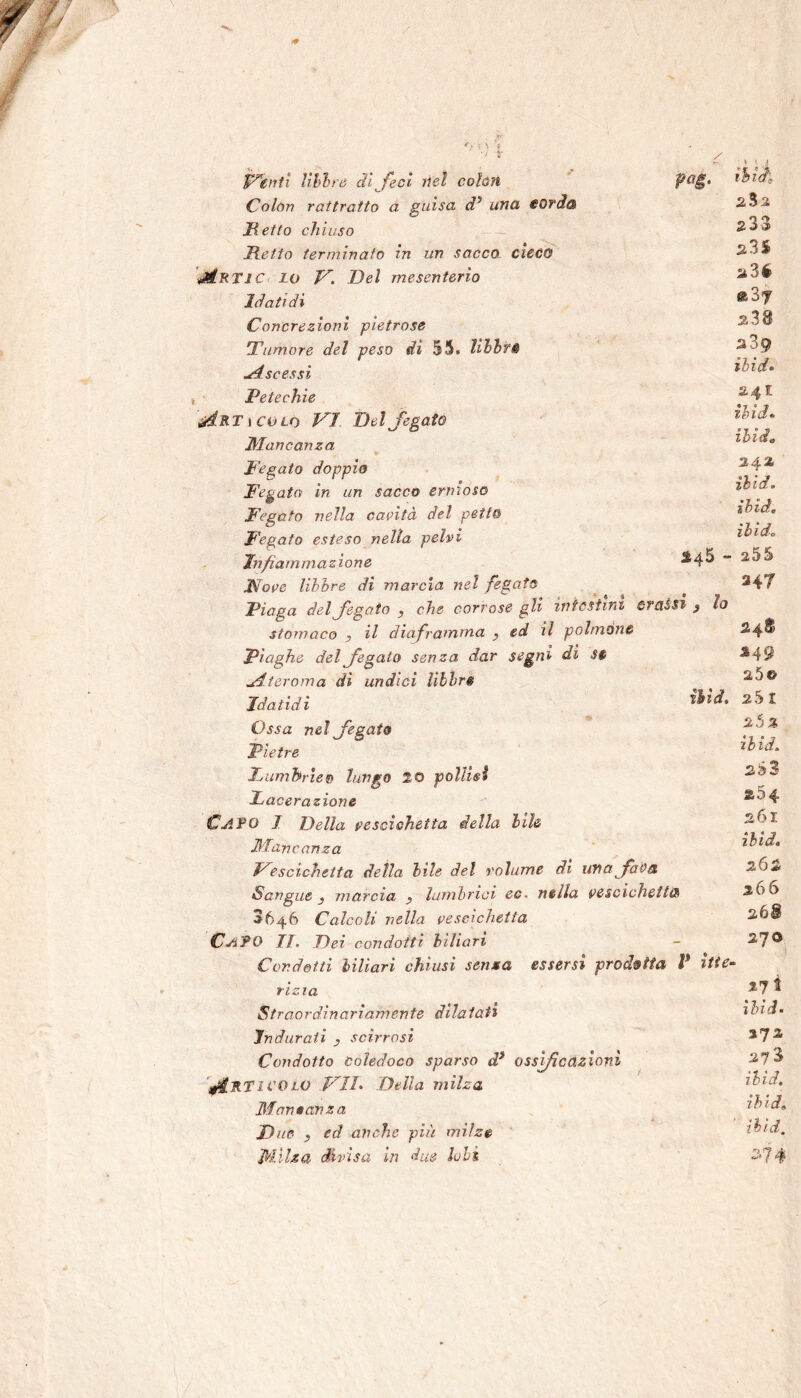 Venti libbre di feci nel colon pag. ibid.
Colon rattratto a guisa d' una corda 232
Retto chiuso 233
Retto terminato in un sacco cieco 235
ARTICOLO V. Del mesenterio 236
Idatidi 237
Concrezioni pietrose 238
Tumore del peso di 35. libbre 239
Ascessi ibid.
Petechie 241
ARTICOLO VI. Del fegato ibid.
Mancanza ibid.
Fegato doppio 242
Fegato in un sacco ernioso ibid.
Fegato nella cavità del petto ibid.
Fegato esteso nella pelvi ibid.
Infiammazione 245 - 255
Nove libbre di marcia nel fegato 247
Piaga del fegato, che corrose gli intestini crassi, lo
stomaco, il diaframma, ed il polmone 248
Piaghe del fegato senza dar segni di se 249
Ateroma di undici libbre 250
Idatidi ibid. 251
Ossa nel fegato 252
Pietre ibid.
Lumbrico lungo 20 pollici 253
Lacerazione 254
CAPO I Della vescichetta della bile 261
Mancanza ibid.
Vescichetta della bile del volume di una fava 262
Sangue, marcia, lumbrici ec. nella vescichetta 266
3646 Calcoli nella vescichetta 268
CAPO II. Dei condotti biliari - 270
Condotti biliari chiusi senza essersi prodotta l' itte-
rizia 271
Straordinariamente dilatati ibid.
Indurati, scirrosi 272
Condotto coledoco sparso d' ossificazioni 273
ARTICOLO VII. Della milza ibid.
Mancanza ibid.
Due, ed anche più milze ibid.
Milza divisa in due lobi 274